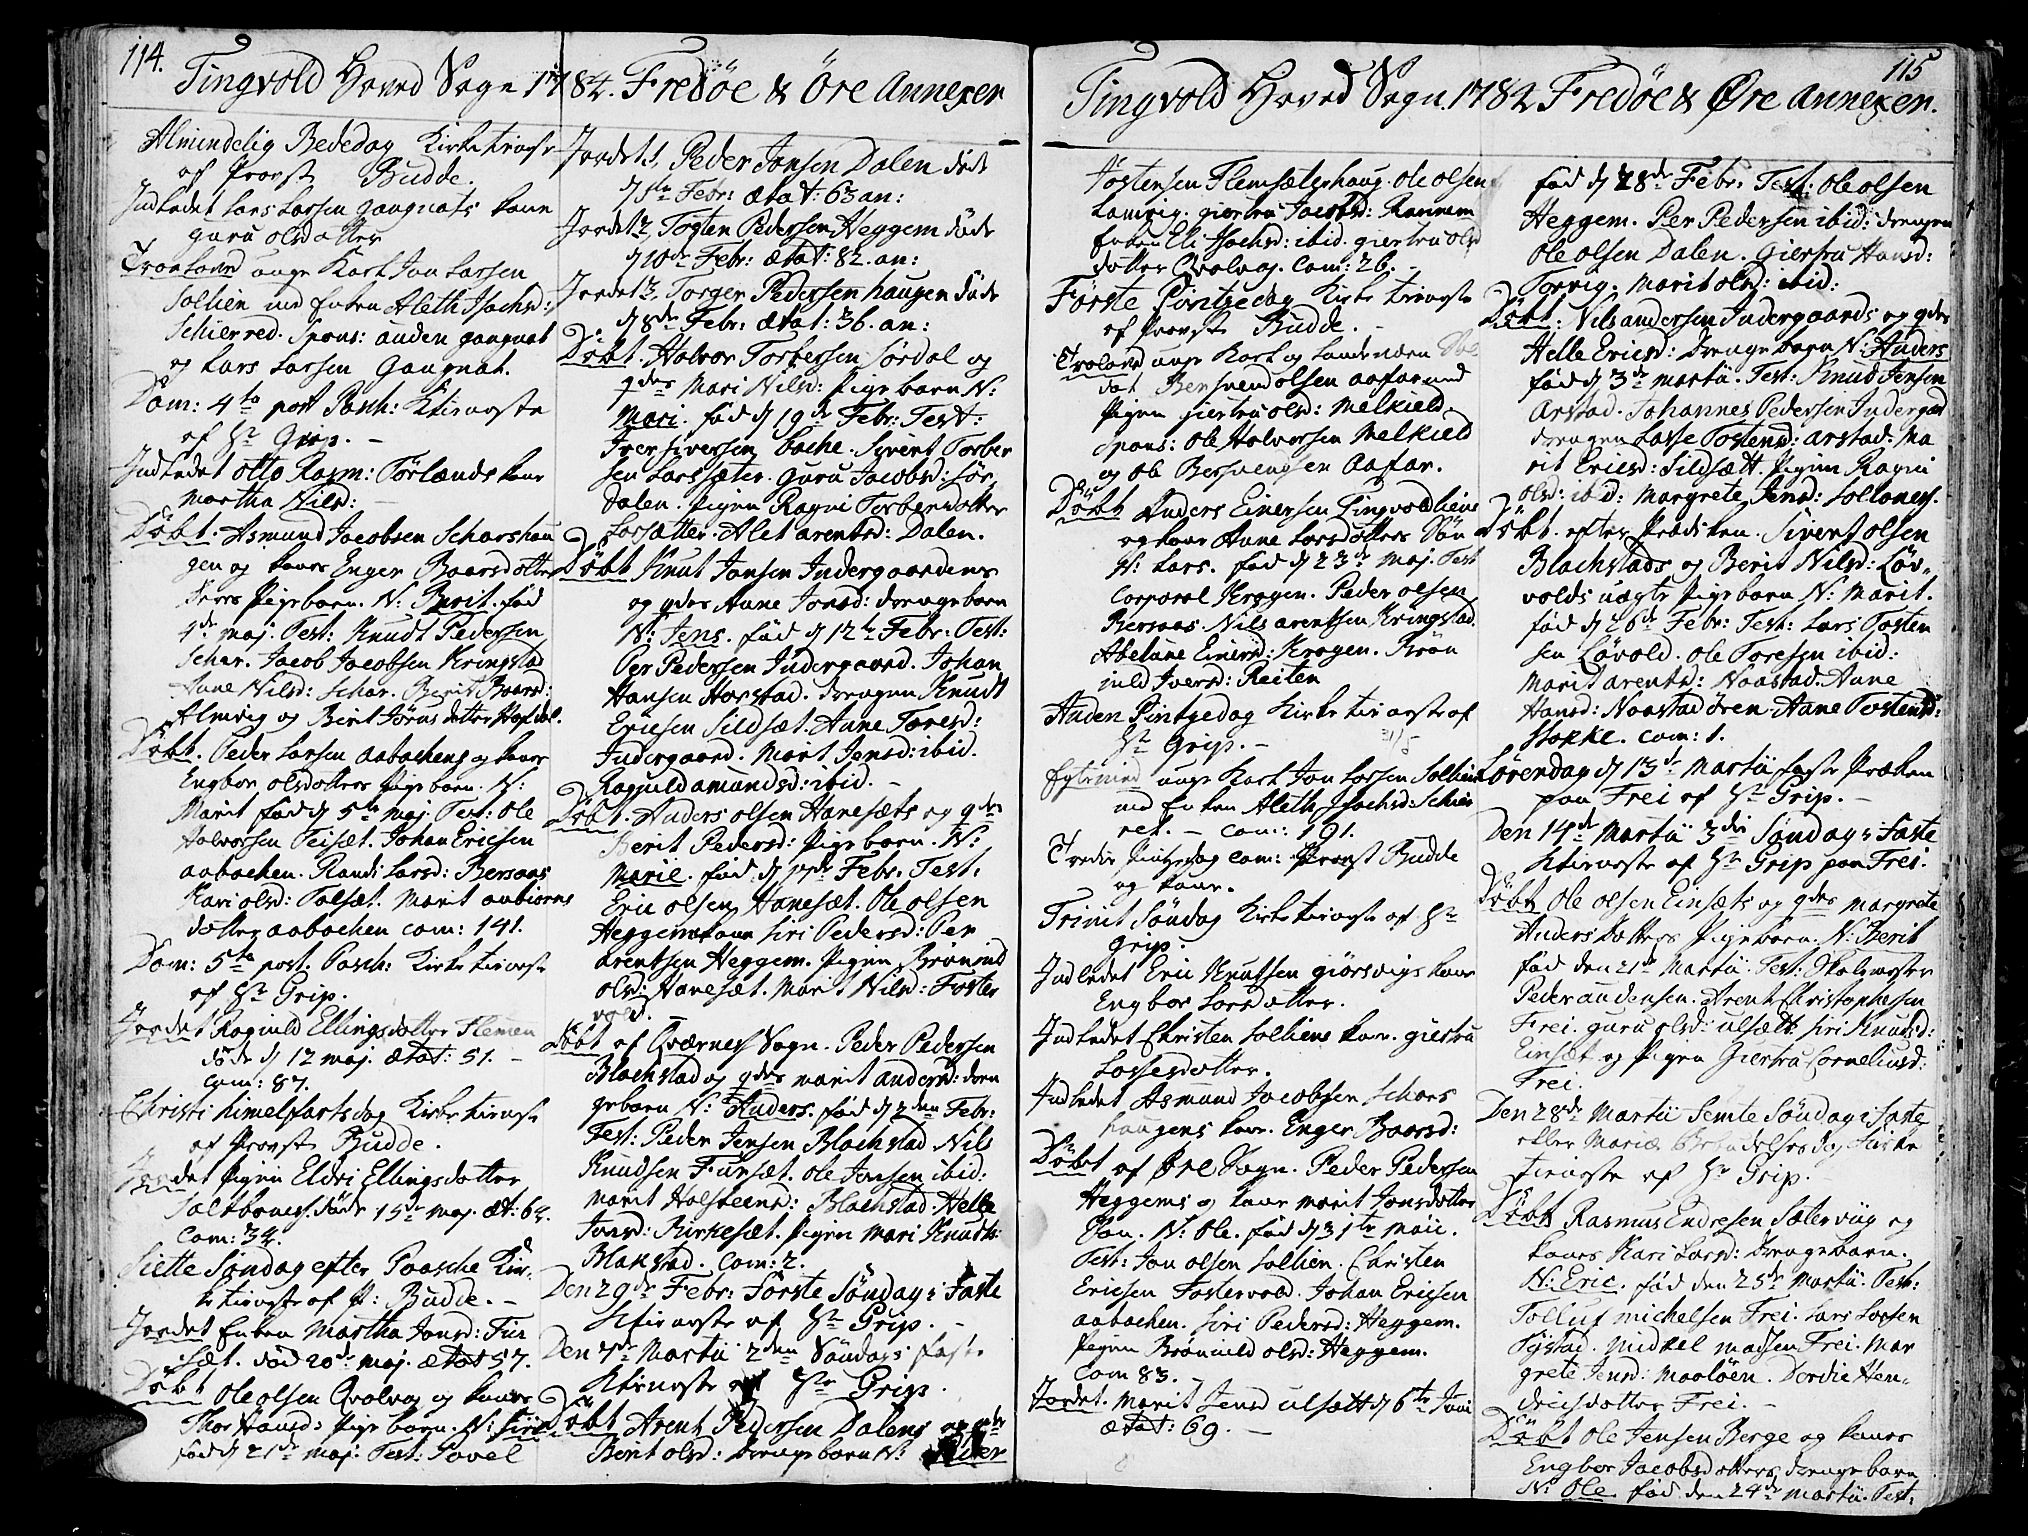 114.
Tingvold Hoved Sogn 1784. Fredöe & Öre Annexer
Almindelig Bededag Kirketieneste
af Provst Budde.
Indledet Lars Larsen Gangnats kone
Guru Olsdotter
Trolovd unge Karl Jon Larsen
Solliien med Enken Aleth Isachsd:
Schierred. Spons: Auden Gangnat
og Lars Larsen Gangnat.
Dom: 4ta post Pasch: Ktieneste
af Hr Grip. -
Indledet Otto Rasm: Törlands kone
Martha Nilsd:
Döbt. Asmund Jacobsen Scharshau
gen og kones Enger Baarsdotter
Deres Pigebarn. N: Berit. fød
4de Maj. Test: Knudt Pedersen
Schar. Jacob Jacobsen Kringstad
Anne Nilsd: Schar. Berit Baarsd:
Almvig og Berit Jörnsdotter Hafdal.
Döbt. Peder Larsen Aabachens og kones
Engbor Olsdotters Pigebarn. N:
Marit fød d 5te Maj. Test: Ole
Halvorsen Teisæt. Johan Ericsen
Aabachen. Randi Larsd: Bersaas
Kari Olsd: Talsæt. Marit Anbiörns
dotter Aabachen Com: 141.
Dom: 5ta post. Pasch: Kirketieneste
af Hr Grip.
Jordet Ragnild Ellingsdotter Flemen
døde d 12 Maj. ætat: 51. -
Com: 87.
Christi Himelfartsdag Kirketieneste
af Provst Budde.
Jordet Pigen Eldri Ellingsdotter
Saltbones. døde 15de Maj. æt: 64.
Com: 34.
Siette Søndag efter Paasche Kir-
ketieneste af P: Budde. -
Jordet Enken Martha Jonsd: Fur
sæt. død 20de Maj. ætat 57.
Döbt Ole Olsen Qvalvog og kones
Thor Hansd: Pigebarn. N: Siri
fød d 21de Maj: Test: Povel
Jordet 1, Peder Jonsen Dalen døde
d 5te Febr: ætat: 63 an:
Jordet 2, Tosten Pedersen Heggem døde
d 10de Febr: ætat: 82. an:
Jordet 3, Torger Pedersen Haugen døde
d 8de Febr: ætat: 36. an:
Döbt. Halvor Torbersen Sørdal og
qdes Mari Nilsd: Pigebarn N:
Mari. fød d 19de Febr: Test:
Iver Siversen Bache. Sivert Torber
sen Larssæter. Guru Jacobsd: Sör
dalen. Pigen Ragni Torbersdotter
Larssætter. Alet Arentsd: Dalen.
Döbt Knut Jonsen Indergaardens
og qdes Anne Jonsd: Drengebarn
N: Jens. fød d 12te Febr: Test:
Per Pedersen Indergaard. Johan
Hansen Harstad. Drengen Knudt
Ericsen Sildsæt. Anne Toresd:
Indergaard. Marit Jensd: ibid.
Ragnild Amundsd: ibid. -
Döbt. Anders Olsen Hanesæts og qdes
Berit Pedersd: Pigebarn. N:
Marie. fød d 17de Febr: Test:
Eric Olsen Hanesæt. Ole Olsen
Heggem kone Siri Pedersd: Per
Arentsen Heggem. Pigen Brønild
Olsd: Hanesæt. Marit Nilsd: Foster
vold.
Döbt af Qværnes Sogn. Peder Pedersen
Blachstad og qdes Marit Andersd: Dren
gebarn N: Anders. fød d 2den Febr:
Test: Peder Jensen Blachstad. Nils
Knudsen Fursæt. Ole Jonsen ibid:
Marit Halsteensd: Blachstad. Helle
Jonsd: Kirkesæt. Pigen Mari Knudts:
Blakstad. Com: 2.
Den 29de Febr: Förste Söndag i Faste
Ktieneste af Hr Grip. -
Den 7de Martii 2den Søndag i Faste
Ktieneste af Hr Grip.
Döbt Arent Pedersen Dalens og qdes
Berit Olsd: Drengebarn N: Peder
115
Tingvold Hoved Sogn. 1784 Fredöe & Øre Annexer.
Tostensen Flemsæterhaug. Ole Olsen
Lamvig. Giertru Jacobsd: Rannem
Enken Eli Isachsd: ibid. Giertru Ols
dotter Qvalvog. Com: 26. -
Förste Pintzedag Kirketieneste
af Provst Budde. -
Trolovd unge Karl og Landeværn Sol
dat Bersvend Olsen Aafar med
Pigen Giertru Olsd: Melkield
Spons: Ole Halvorsen Melkield
og Ole Bersvendsen Aafar.
Döbt Anders Einersen Tingvoldliens
og kone Anne Larsdotters Søn
N: Lars. fød d 23de Maj. Test
Corporal Kragen. Peder Olsen
Bersaas. Nils Arentsen Kringstad.
Abelune Einersd: Kragen. Krön
inld Iversd: Reiten
Anden Pintzedag Kirketieneste af
Hr Grip. -
31/5
Egteviud unge Karl Jon Larsen Solliien
med Enken Aleth Isachsd: Schier
red. - Com: 191.
Tredie Pintzedag Com: Provst Budde
og kone.
Trinit Søndag Kirketieneste af Hr
Grip.
Indledet Eric Knutsen Giörsvigs kone
Engbor Larsdotter.
Indledet Christen Solliens kone. Giertru
Lassesdotter.
Indledet Asmund Jacobsen Schars
haugens kone. Enger Baarsd:
Döbt af Øre Sogn. Peder Pedersen
Heggems og kone Marit Jonsdotter
Søn. N: Ole. fød d 31te Maii.
Test: Jon Olsen Sollien. Christen
Ericsen Fostervold. Johan Ericsen
Aabachen. Siri Pedersd: Heggem.
Pigen Brønnild Olsd: Heggem.
Com 83. -
Jordet. Marit Jensd Ulsætt d 6te Juni
ætat: 69. -
fød d 28de Febr: Test: Ole Olsen
Heggem. Per Pedersen ibid: Drengen
Ole Olsen Dalen. Giertru Hansd:
Torvig. Marit Olsd: ibid:
Döbt. Nils Andersen Indergaards og qdes
Helle Ericsd: Drengebarn N: Anders
fød d 3de Martii. Test: Knud Jensen
Arstad. Johannes Pedersen Indergaard
Drengen Lasse Tostensd: Arstad. Ma
rit Ericsd: Sildsætt. Pigen Ragni
Olsd: ibid: Margrete Jensd: Soltones.
Döbt. efter Prædiken. Sivert Olsen
Blachstads og Berit Nilsd: Löv-
volds uægte Pigebarn N: Marit.
fød d 26de Febr: Test: Lars Tosten
sen Løvold. Ole Toresen ibid:
Marit Arentsd: Naastad. Anne
Hansd: Naastadören. Anne Tostensd:
Stokke. Com: 1.
Lørendag d 13de Martii faste Præken
paa Frei af Hr Grip. -
Den 14de Martii 3die Søndag i Faste
Ktieneste af Hr Grip paa Frei.
Döbt Ole Olsen Einsæts og qdes Margrete
Andersdotters Pigebarn. N: Berit
fød den 21de Martii. Test: Skolemester
Peder Audensen. Arent Christophersen
Frei. Guru Olsd: Ulsætt. Siri Knudsd:
Einsæt og Pigen Giertru Corneliusd:
Frei.
Den 28de Martii Femte Søndag i Faste
eller Mariæ Bebudelses dag Kirke
tieneste af Hr Grip.
Döbt Rasmus Endresen Sætervig og
kones Kari Larsd: Drengebarn.
N: Eric. fød den 25de Martii. Test:
Tolluf Michelsen Frei. Lars Larsen
Tystad. Mickel Madsen Frei. Mar
grete Jensd: Maalöen. Dordie Hen-
dricsdotter Frei. -
Döbt Ole Jensen Berge og kones
Engber Jacobsdotters Drengebarn
N: Ole fød den 24de Martii. Test: